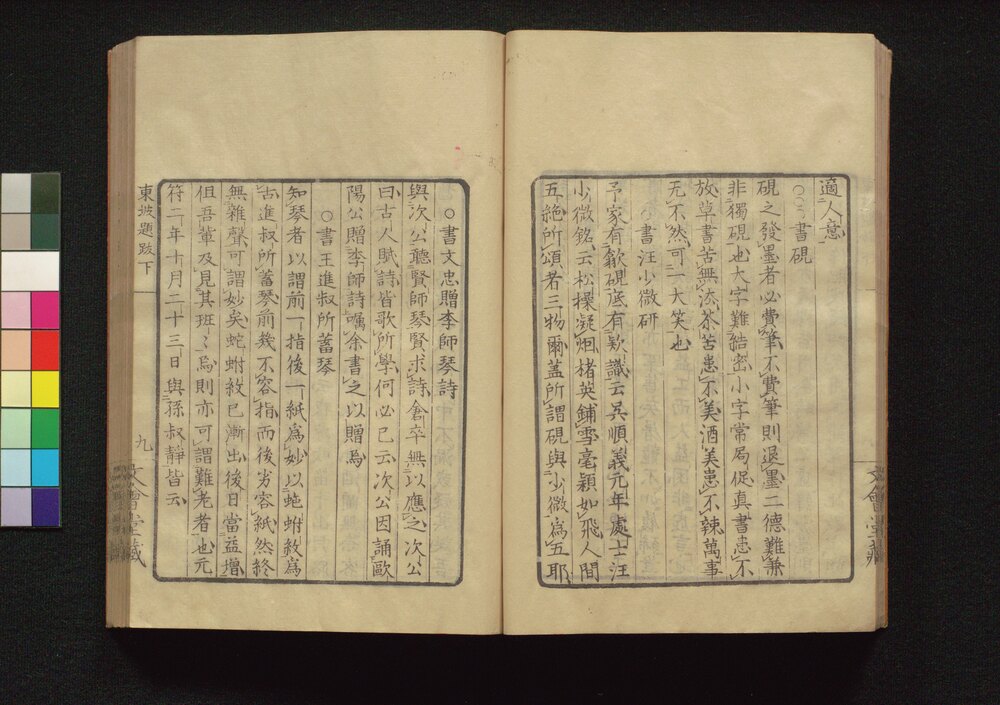 適人意
○書硯
硯之發墨者必費筆不費筆則退墨二德難兼
非獨硯也大字難結密小字常局促真書患不
放草書苦無法茶苦患不美酒美患不辣萬事
無不然可一大笑也
○書汪少微硯
予家有歙硯底有欵識云吳順義元年處士汪
少微銘云松操凝烟楮英鋪雪毫穎如飛人間
五絕所頌者三物爾蓋所謂硯與少微為五耶
○書文忠贈李師琴詩
與次公聽賢師琴賢求詩倉卒無以應之次公
曰古人賦詩皆歌所學何必已云次公因誦歐
陽公贈李師詩囑余書之以贈焉
○書王進叔所蓄琴
知琴者以謂前一指後一紙為妙以虵蚹紋為
古進叔所蓄琴前幾不容指而後劣容紙然終
無雜聲可謂妙矣蛇蚹紋已漸出後日當益增
但吾輩及見其班〻焉則亦可謂難老者也元
符二年十月二十三日與孫叔靜皆云
東坡題跋下
九
文會堂藏
文會堂藏